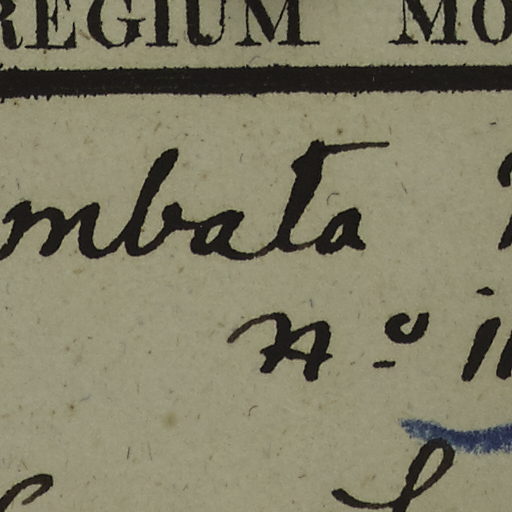 REGIUM MO
mbata
Nº 1